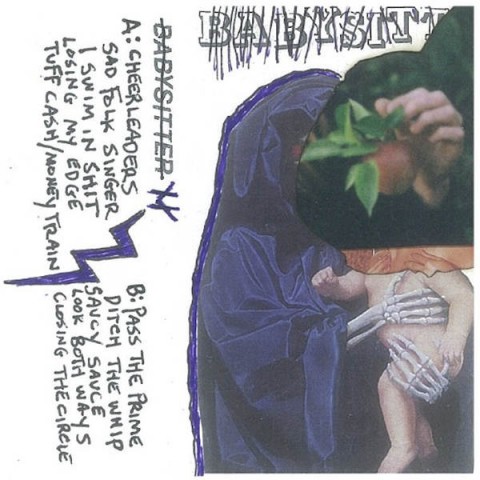 BABYSITT
BABYSITTER XX
A: CHEERLEADERS
SAD FOLK SINGER
I SWIM IN SHIT
LOSING MY EDGE
TUFF CASH/MONEY TRAIN
B: PASS THE PRIME
DITCH THE WHIP
SAUCY SAUCE
LOOK BOTH WAYS
CLOSING THE CIRCLE